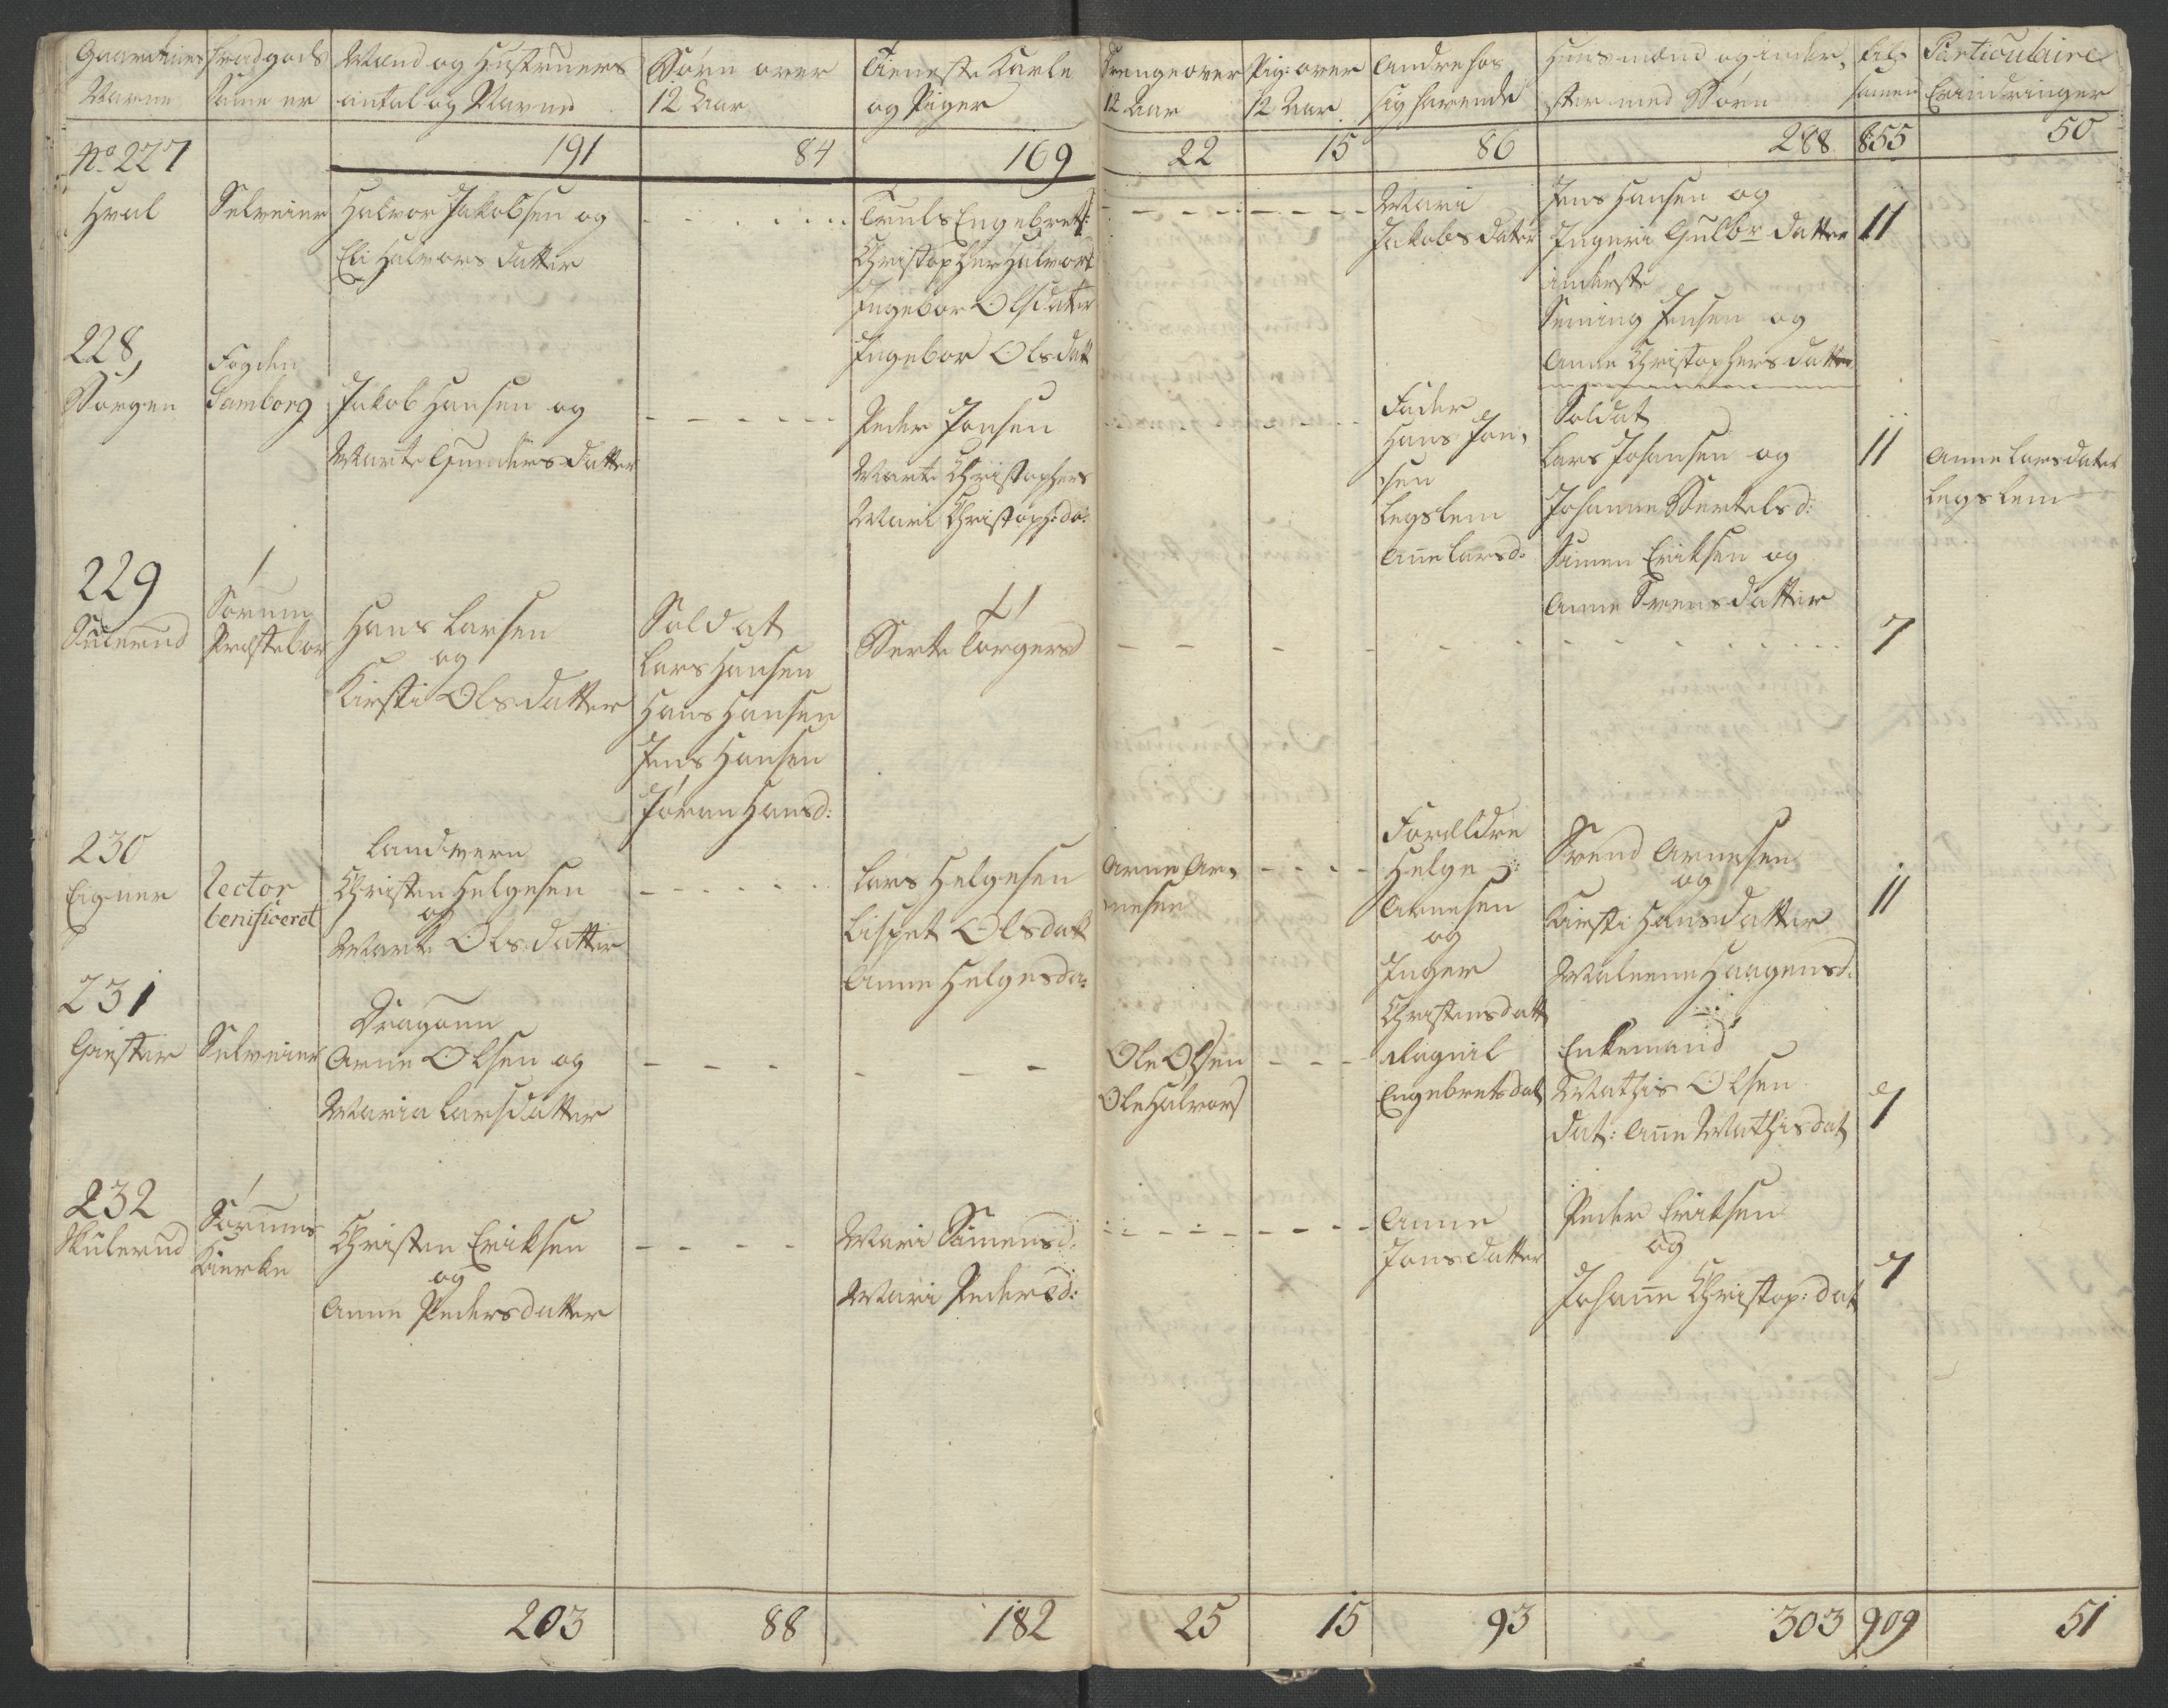 Gaardenes Navne
hvad gods samme er
Mand og Hustruers antal og Navne
Børn over 12 Aar
Tieneste Karle og Piger
Drenge over 12 Aar
Pig: over 12 Aar
Andre hos sig havende
Huusmænd og inder, ster med Børn
til, samen
Particulaire Erindringer
191
84
169
22
15
86
288
855
50
No 227
Hval
Selveier
Halvor Jakobsen og
Eli Halvors datter
Truls Engebrets:
Christopher Halvors
Ingebor Olsdatter
Ingebor Olsdatt
Mari
Jakobs datter
Jens Hansen og
Ingeri Gulbr datter
inderste
Jensen og
Anne Christophersdatter
11
228,
Borgen
Fogden
Lamborg
Jakob Hansen og
Marte Gunders datter
Peder Jonsen
Marte Christophers
Mari Christoph: da:
Fader
Hans Jon,
sen
Legslem
Anne Larsd:
Soldat
Lars Johansen og
Johanne Bertelsd:
Simen Eriksen og
Anne Svens datter
11
Anne Larsdater
Legslem
229
Sørum
Præstebor
Hans Larsen
og
Kirsti Olsdatter
Soldat
Lars Hansen
Hans Hansen
Jens Hansen
Jøran Hansd:
Berte Torgersd
7
230
Eigner
Lector
benificeret
Landværn
Christen Helgesen
og
Marte Olsdatter
Lars Helgesen
Lisbet Olsdatt
Anne Helgesda:
Arne Ar,
nesen
Forældre
Helge
Arnesen
og
Inger
Christensdatt
Svend Arnesen
og
Kirsti Hansdatter
Malene Haagensd:
11
231
Giester
Selveier
Dragonn
Arne Olsen og
Maria Larsdatter
Ole Olsen
Ole Halvors
Ragnil
Engebretsdat
Enkemand
Mathis Olsen
dat: Anne Mathisdat
7
232
Skulerud
Sørums
Kierke
Christen Eriksen
og
Anne Pedersdatter
Mari Simensd:
Mari Pedersd:
Anne
Jonsdatter
Peder Eriksen
og
Johanne Christop: dat
7
203
88
182
25
15
93
303
909
51